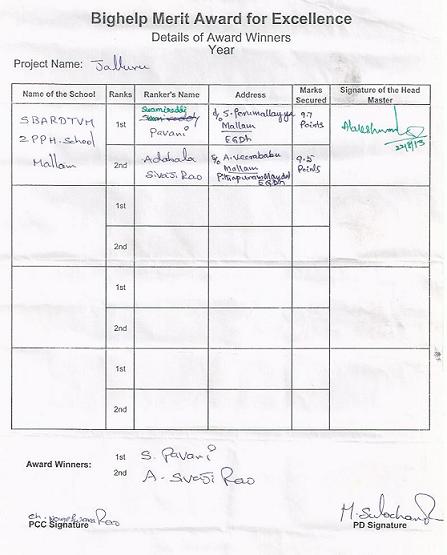 Bighelp Merit Award for Excellence
Details of Award Winners
Year
Project Name: Jalluru
Name of the School Ranks Ranker's Name Address Marks Secured Signature of the Head Master
SBARDTVM
Z.P.P.H. School
Mallam
1st
Swamireddy
Pavani
S. Perumallayya
Mallam
EGDh
9.7
Points
22/8/13
2nd
Adahala
Sivaji Rao
S/o A. Veerababu
Mallam
Pithapuram Mandal
EGDh
9.5
Points
1st
2nd
1st
2nd
1st
2nd
Award Winners:
1st S. Pavani
2nd A. Sivaji Rao
Ch. Rao
PCC Signature
M. Sulochana
PD Signature